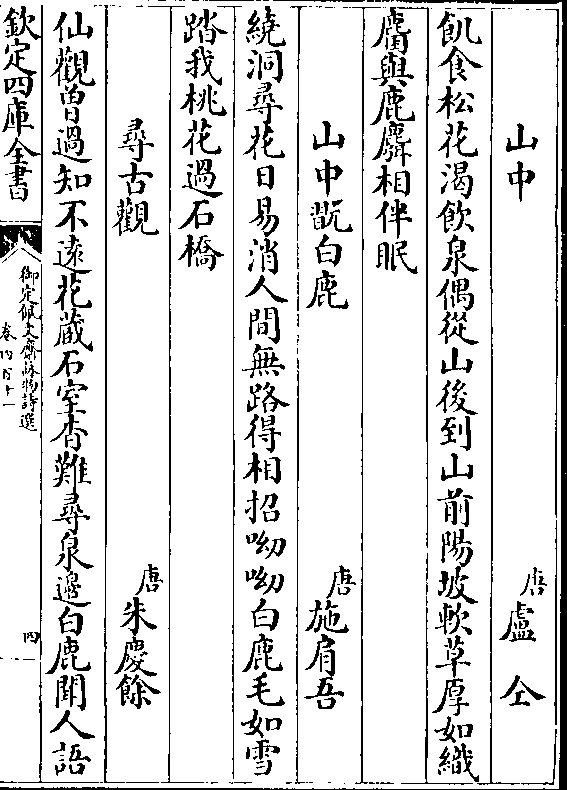 山中
唐盧仝
飢食松花渴飲泉偶從山後到山前陽坡軟草厚如織
麕與鹿麛相伴眠
山中翫白鹿
唐施肩吾
繞洞尋花日易消人間無路得相招呦呦白鹿毛如雪
踏我桃花過石橋
尋古觀
唐朱慶餘
仙觀曾過知不遠花藏石室杳難尋泉邊白鹿聞人語
欽定四庫全書
御定佩文齋詠物詩選
卷四百十一
四